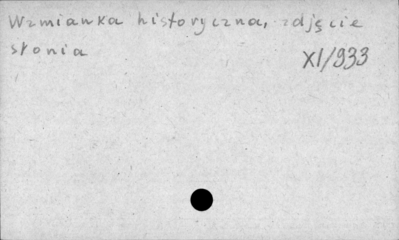 Wzmianka historyczna, zdjęcie
słonia
XI/933